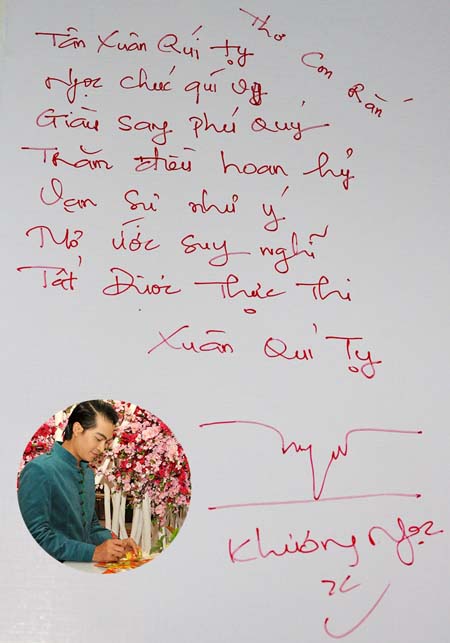 Thơ Con Rắn
Tân Xuân Quí Tỵ
Ngọc chúc quí vị
Giàu sang phú quý
Trăm điều hoan hỷ
Vạn sự như ý
Mơ ước suy nghĩ
Tất Được Thực Thi
Xuân Quí Tỵ
Khương Ngọc